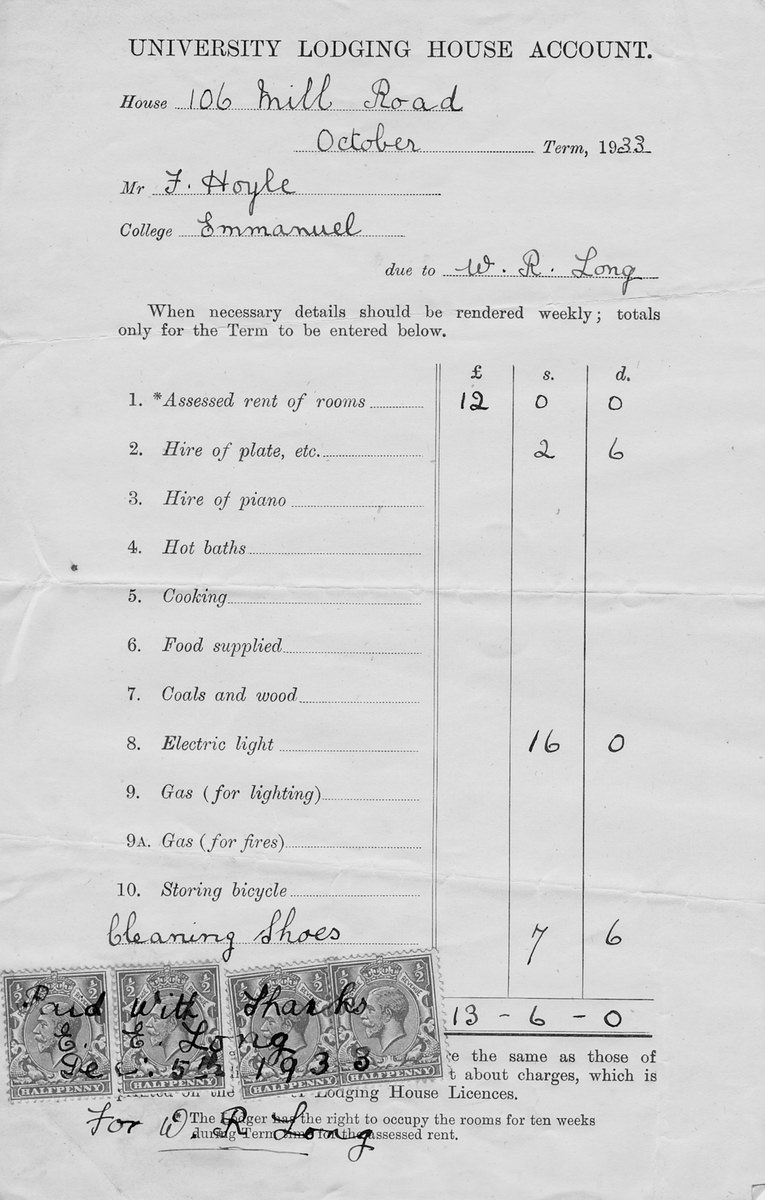 UNIVERSITY LODGING HOUSE ACCOUNT.
House 106 Mill Road
October Term, 1933
Mr F. Hoyle
College Emmanuel
due to W. R. Long
When necessary details should be rendered weekly; totals
only for the Term to be entered below.
£ s. d.
1. *Assessed rent of rooms 12 0 0
2. Hire of plate, etc. 2 6
3. Hire of piano
4. Hot baths
5. Cooking
6. Food supplied
7. Coals and wood
8. Electric light 16 0
9. Gas (for lighting)
9A. Gas (for fires)
10. Storing bicycle
Cleaning Shoes 7 6
13 - 6 - 0
Paid With Thanks
E. E. Long
Dec: 5th 1933
HALFPENNY HALFPENNY HALFPENNY HALFPENNY
the same as those of
about charges, which is
on the Lodging House Licences.
For W. R. Long
* The Lodger has the right to occupy the rooms for ten weeks
during Term time for the assessed rent.